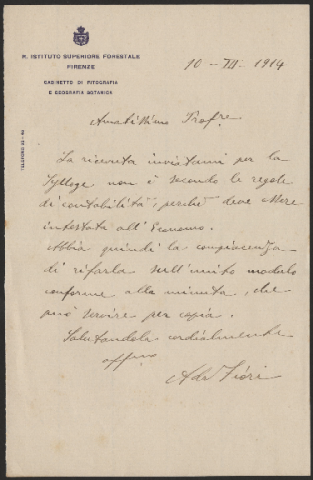 R. ISTITUTO SUPERIORE FORESTALE
FIRENZE
GABINETTO DI FITOGRAFIA
E GEOGRAFIA BOTANICA
10 - VII. 1914
Amatissimo Prof.re
La ricevuta inviatami per la
Sylloge non è secondo le regole
di contabilità, perchè deve essere
intestata all'Economo.
Abbia quindi la compiacenza
di rifarla sull'unito modulo
conforme alla minuta, che
può servire per copia.
Salutandola cordialmente
aff.mo
Adr. Fiori